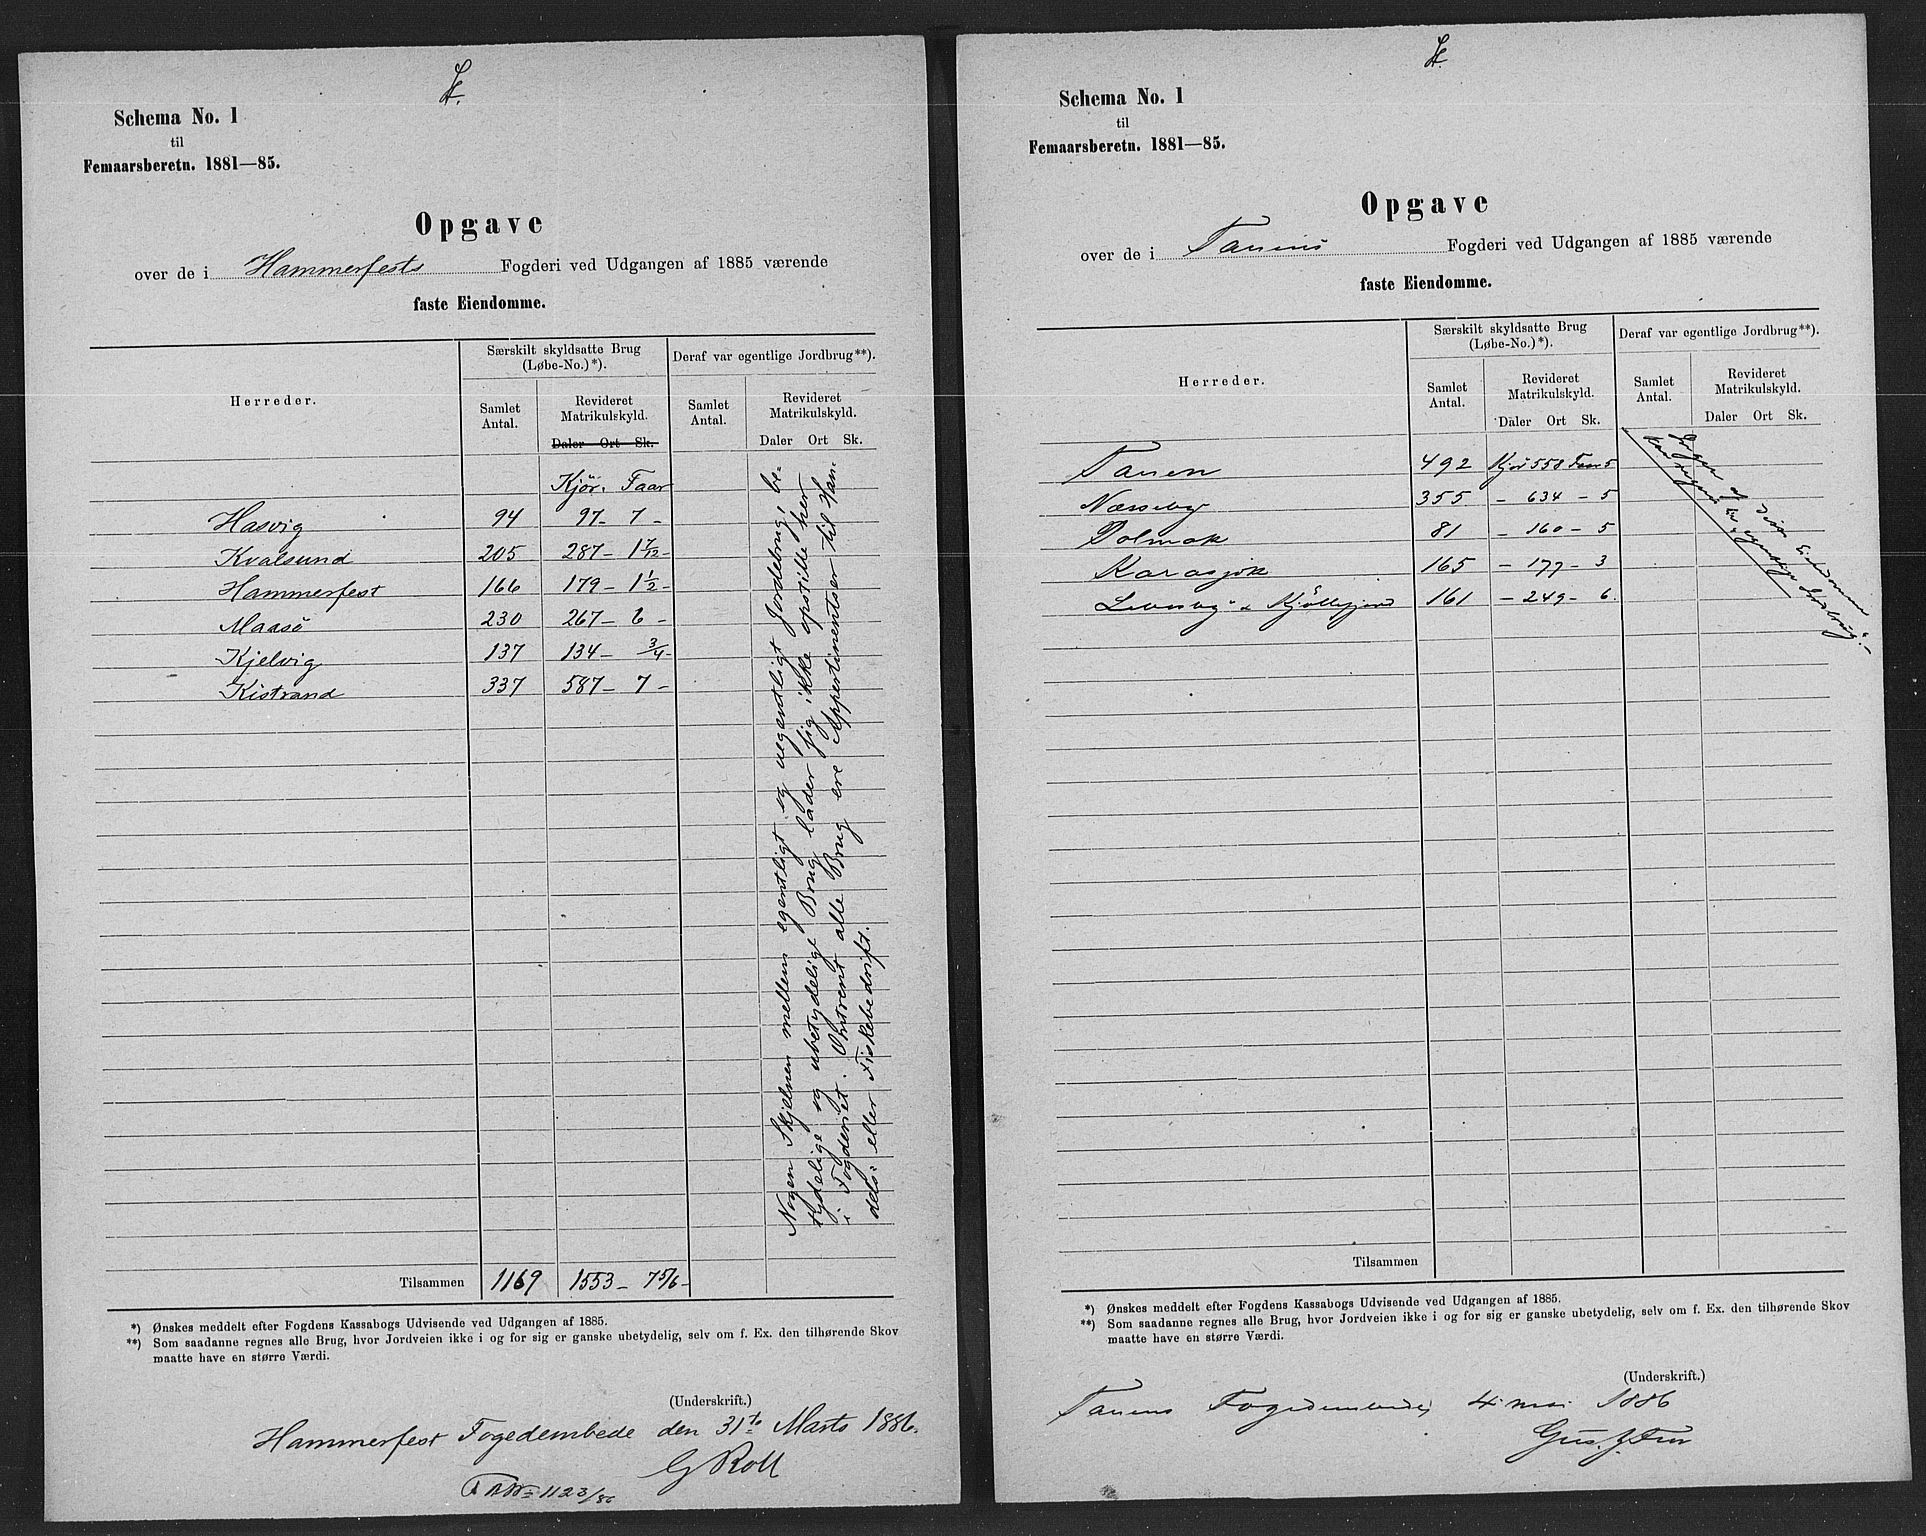 St.
Schema No. 1
til
Femaarsberetn. 1881—85.
Opgave
over de i Hammerfests Fogderi ved Udgangen af 1885 værende
faste Eiendomme.
Herreder.
Særskilt skyldsatte Brug
(Løbe-No.)*).
Deraf var egentlige Jordbrug**).
Samlet
Antal.
Revideret
Matrikulskyld.
Daler Ort Sk.
Samlet
Antal.
Revideret
Matrikulskyld.
Daler Ort Sk.
Kjør. Faar
Hasvig 94 97 - 7 -
Kvalsund 205 287 - 1 7/12 -
Hammerfest 166 179 - 1 1/2 -
Maasö 230 267 - 6 -
Kjelvig 137 134 - 3/4 -
Kistrand 337 587 - 7 -
Nogen Skjelnen mellem egentligt og uegentligt Jordebrug, be-
tydelige og ubetydeligt Brug lader sig ikke opstille her
i Fogderiet. Omtrent alle Brug ere Appertinentser til Han-
dels- eller Fiskebedrift.
Tilsammen 1169 1553 - 7 5/6 -
*) Ønskes meddelt efter Fogdens Kassabogs Udvisende ved Udgangen af 1885.
**) Som saadanne regnes alle Brug, hvor Jordveien ikke i og for sig er ganske ubetydelig, selv om f. Ex. den tilhørende Skov
maatte have en større Værdi.
(Underskrift.)
Hammerfest Fogedembede den 31te Marts 1886.
G Roll
1123/86
St.
Schema No. 1
til
Femaarsberetn. 1881—85.
Opgave
over de i Tanens Fogderi ved Udgangen af 1885 værende
faste Eiendomme.
Herreder.
Særskilt skyldsatte Brug
(Løbe-No.)*).
Deraf var egentlige Jordbrug**).
Samlet
Antal.
Revideret
Matrikulskyld.
Daler Ort Sk.
Samlet
Antal.
Revideret
Matrikulskyld.
Daler Ort Sk.
Tanen 492 Kjør 558 Faar 5
Næsseby 355 - 634 - 5
Polmak 81 - 160 - 5
Karasjok 165 - 177 - 3
Lebesby & Kjöllefjord 161 - 249 - 6.
Ingen af disse Eiendomme
kan regnes til egentlige Jordbrug.-
Tilsammen
*) Ønskes meddelt efter Fogdens Kassabogs Udvisende ved Udgangen af 1885.
**) Som saadanne regnes alle Brug, hvor Jordveien ikke i og for sig er ganske ubetydelig, selv om f. Ex. den tilhørende Skov
maatte have en større Værdi.
(Underskrift.)
Tanens Fogedembede 4 mai 1886